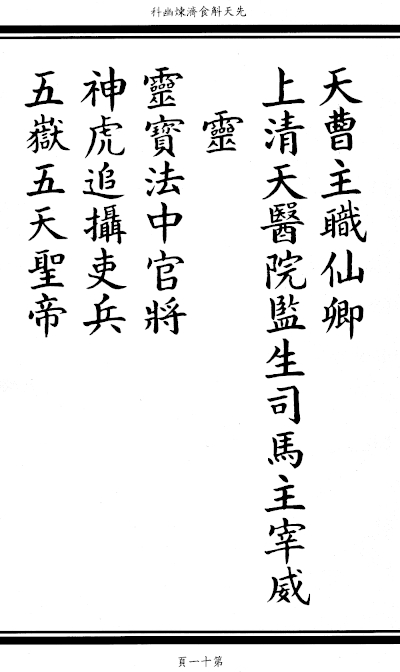 先天斛食濟煉幽科
天曹主職仙卿
上清天醫院監生司馬主宰威
靈
靈寶法中官將
神虎追攝吏兵
五嶽五天聖帝
第十一頁